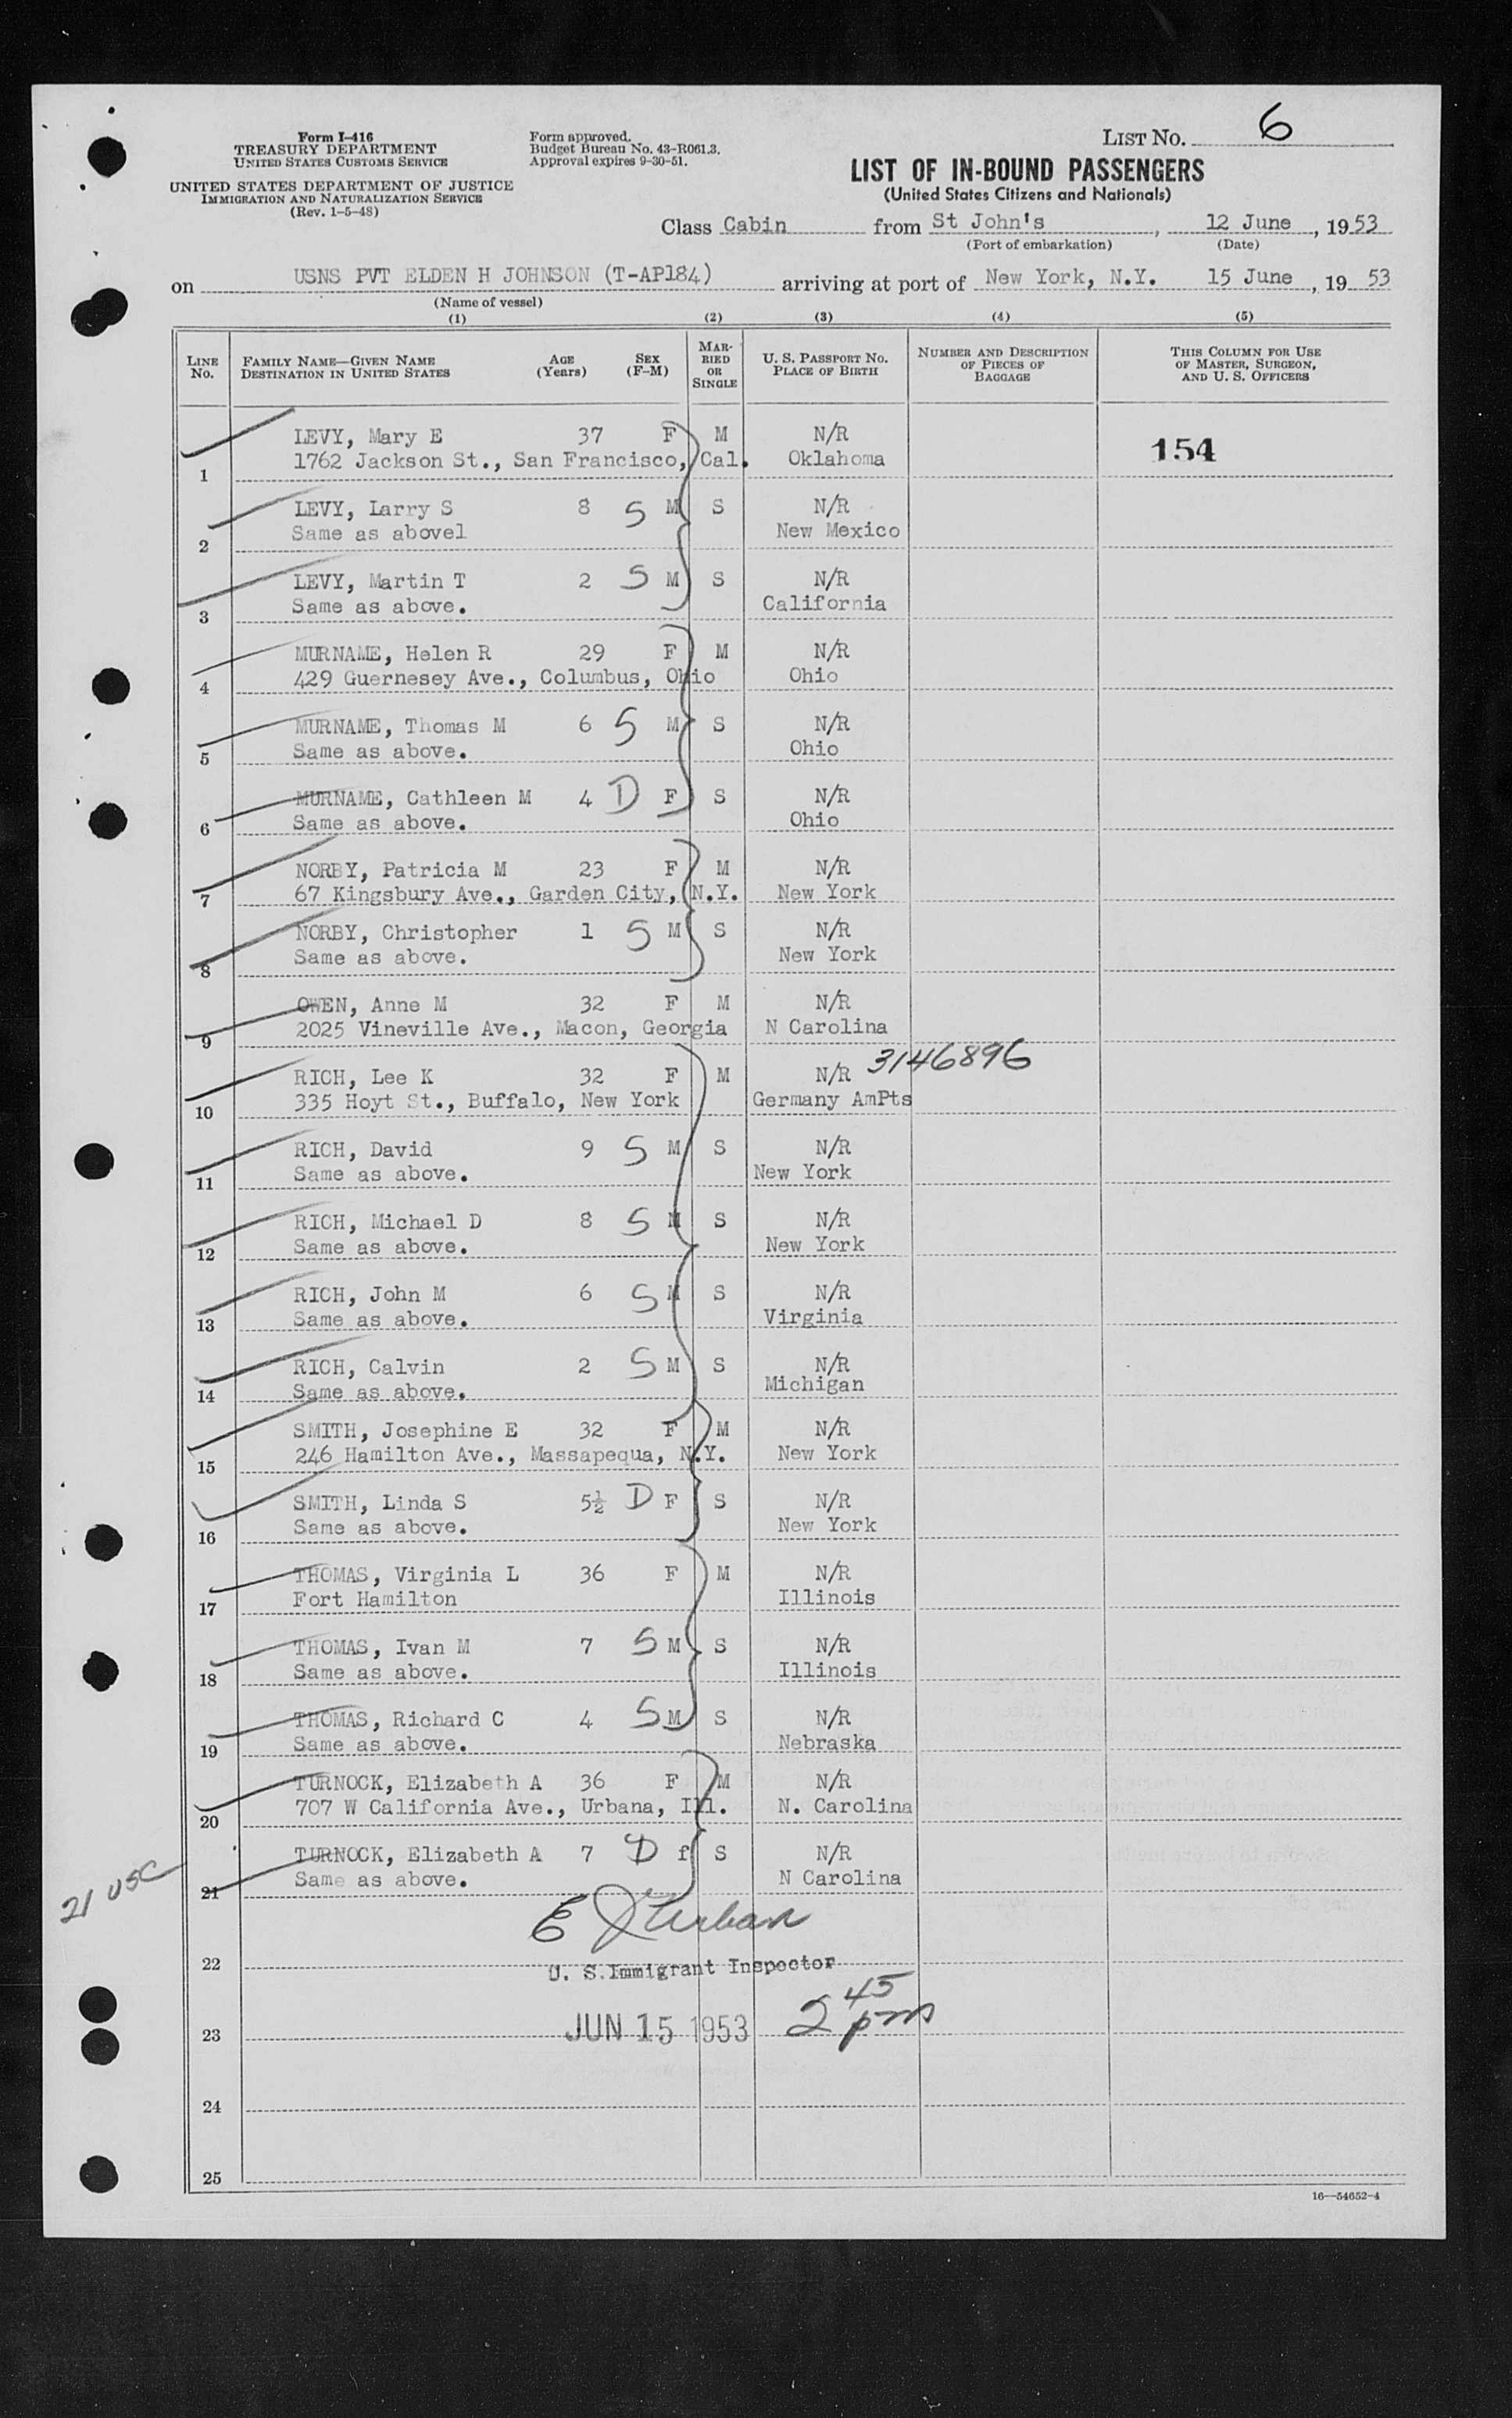 Form I-416
TREASURY DEPARTMENT
UNITED STATES CUSTOMS SERVICE
UNITED STATES DEPARTMENT OF JUSTICE
IMMIGRATION AND NATURALIZATION SERVICE
(Rev. 1-5-48)
Form approved.
Budget Bureau No. 43-R061.3.
Approval expires 9-30-51.
LIST NO. 6
LIST OF IN-BOUND PASSENGERS
(United States Citizens and Nationals)
Class Cabin from St John's, 12 June, 1953
(Port of embarkation) (Date)
on USNS PVT ELDEN H JOHNSON (T-AP184) arriving at port of New York, N.Y. 15 June, 1953
(Name of vessel)
(1) (2) (3) (4) (5)
LINE NO. FAMILY NAME—GIVEN NAME DESTINATION IN UNITED STATES AGE (Years) SEX (F-M) MARRIED OR SINGLE U. S. PASSPORT NO. PLACE OF BIRTH NUMBER AND DESCRIPTION OF PIECES OF BAGGAGE THIS COLUMN FOR USE OF MASTER, SURGEON, AND U. S. OFFICERS
LEVY, Mary E 37 F M N/R 154
1 1762 Jackson St., San Francisco, Cal. Oklahoma
LEVY, Larry S 8 S M S N/R
2 Same as abovel New Mexico
LEVY, Martin T 2 S M S N/R
3 Same as above. California
MURNAME, Helen R 29 F M N/R
4 429 Guernesey Ave., Columbus, Ohio Ohio
MURNAME, Thomas M 6 S M S N/R
5 Same as above. Ohio
MURNAME, Cathleen M 4 D F S N/R
6 Same as above. Ohio
NORBY, Patricia M 23 F M N/R
7 67 Kingsbury Ave., Garden City, N.Y. New York
NORBY, Christopher 1 S M S N/R
8 Same as above. New York
OWEN, Anne M 32 F M N/R
9 2025 Vineville Ave., Macon, Georgia N Carolina
RICH, Lee K 32 F M N/R 3146896
10 335 Hoyt St., Buffalo, New York Germany AmPts
RICH, David 9 S M S N/R
11 Same as above. New York
RICH, Michael D 8 S M S N/R
12 Same as above. New York
RICH, John M 6 S M S N/R
13 Same as above. Virginia
RICH, Calvin 2 S M S N/R
14 Same as above. Michigan
SMITH, Josephine E 32 F M N/R
15 246 Hamilton Ave., Massapequa, N.Y. New York
SMITH, Linda S 5½ D F S N/R
16 Same as above. New York
THOMAS, Virginia L 36 F M N/R
17 Fort Hamilton Illinois
THOMAS, Ivan M 7 S M S N/R
18 Same as above. Illinois
THOMAS, Richard C 4 S M S N/R
19 Same as above. Nebraska
TURNOCK, Elizabeth A 36 F M N/R
20 707 W California Ave., Urbana, Ill. N. Carolina
TURNOCK, Elizabeth A 7 D f S N/R
21 Same as above. N Carolina
21 USC
E J Urban
22 U. S. Immigrant Inspector
23 JUN 15 1953 2 45 pm
24
25
16—54652-4